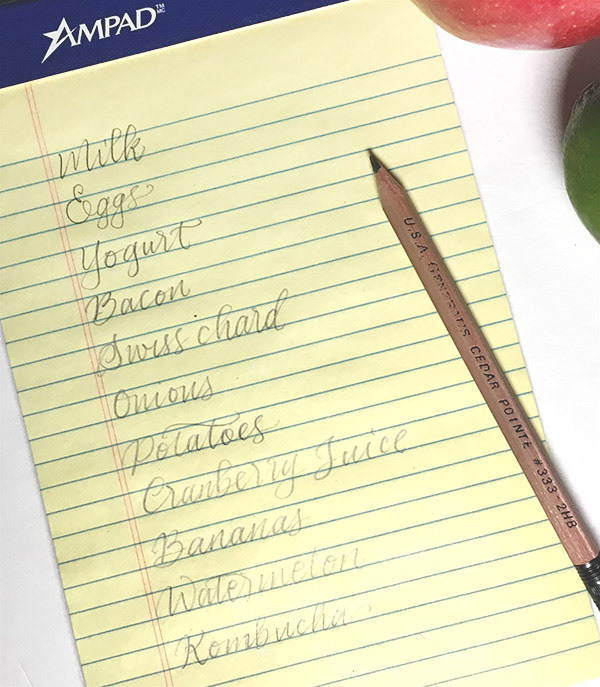 AMPAD™ MC
Milk
Eggs
Yogurt
Bacon
Swiss chard
Onions
Potatoes
Cranberry Juice
Bananas
Watermelon
Kombucha
U.S.A. GENERAL'S CEDAR POINTE #333-2HB